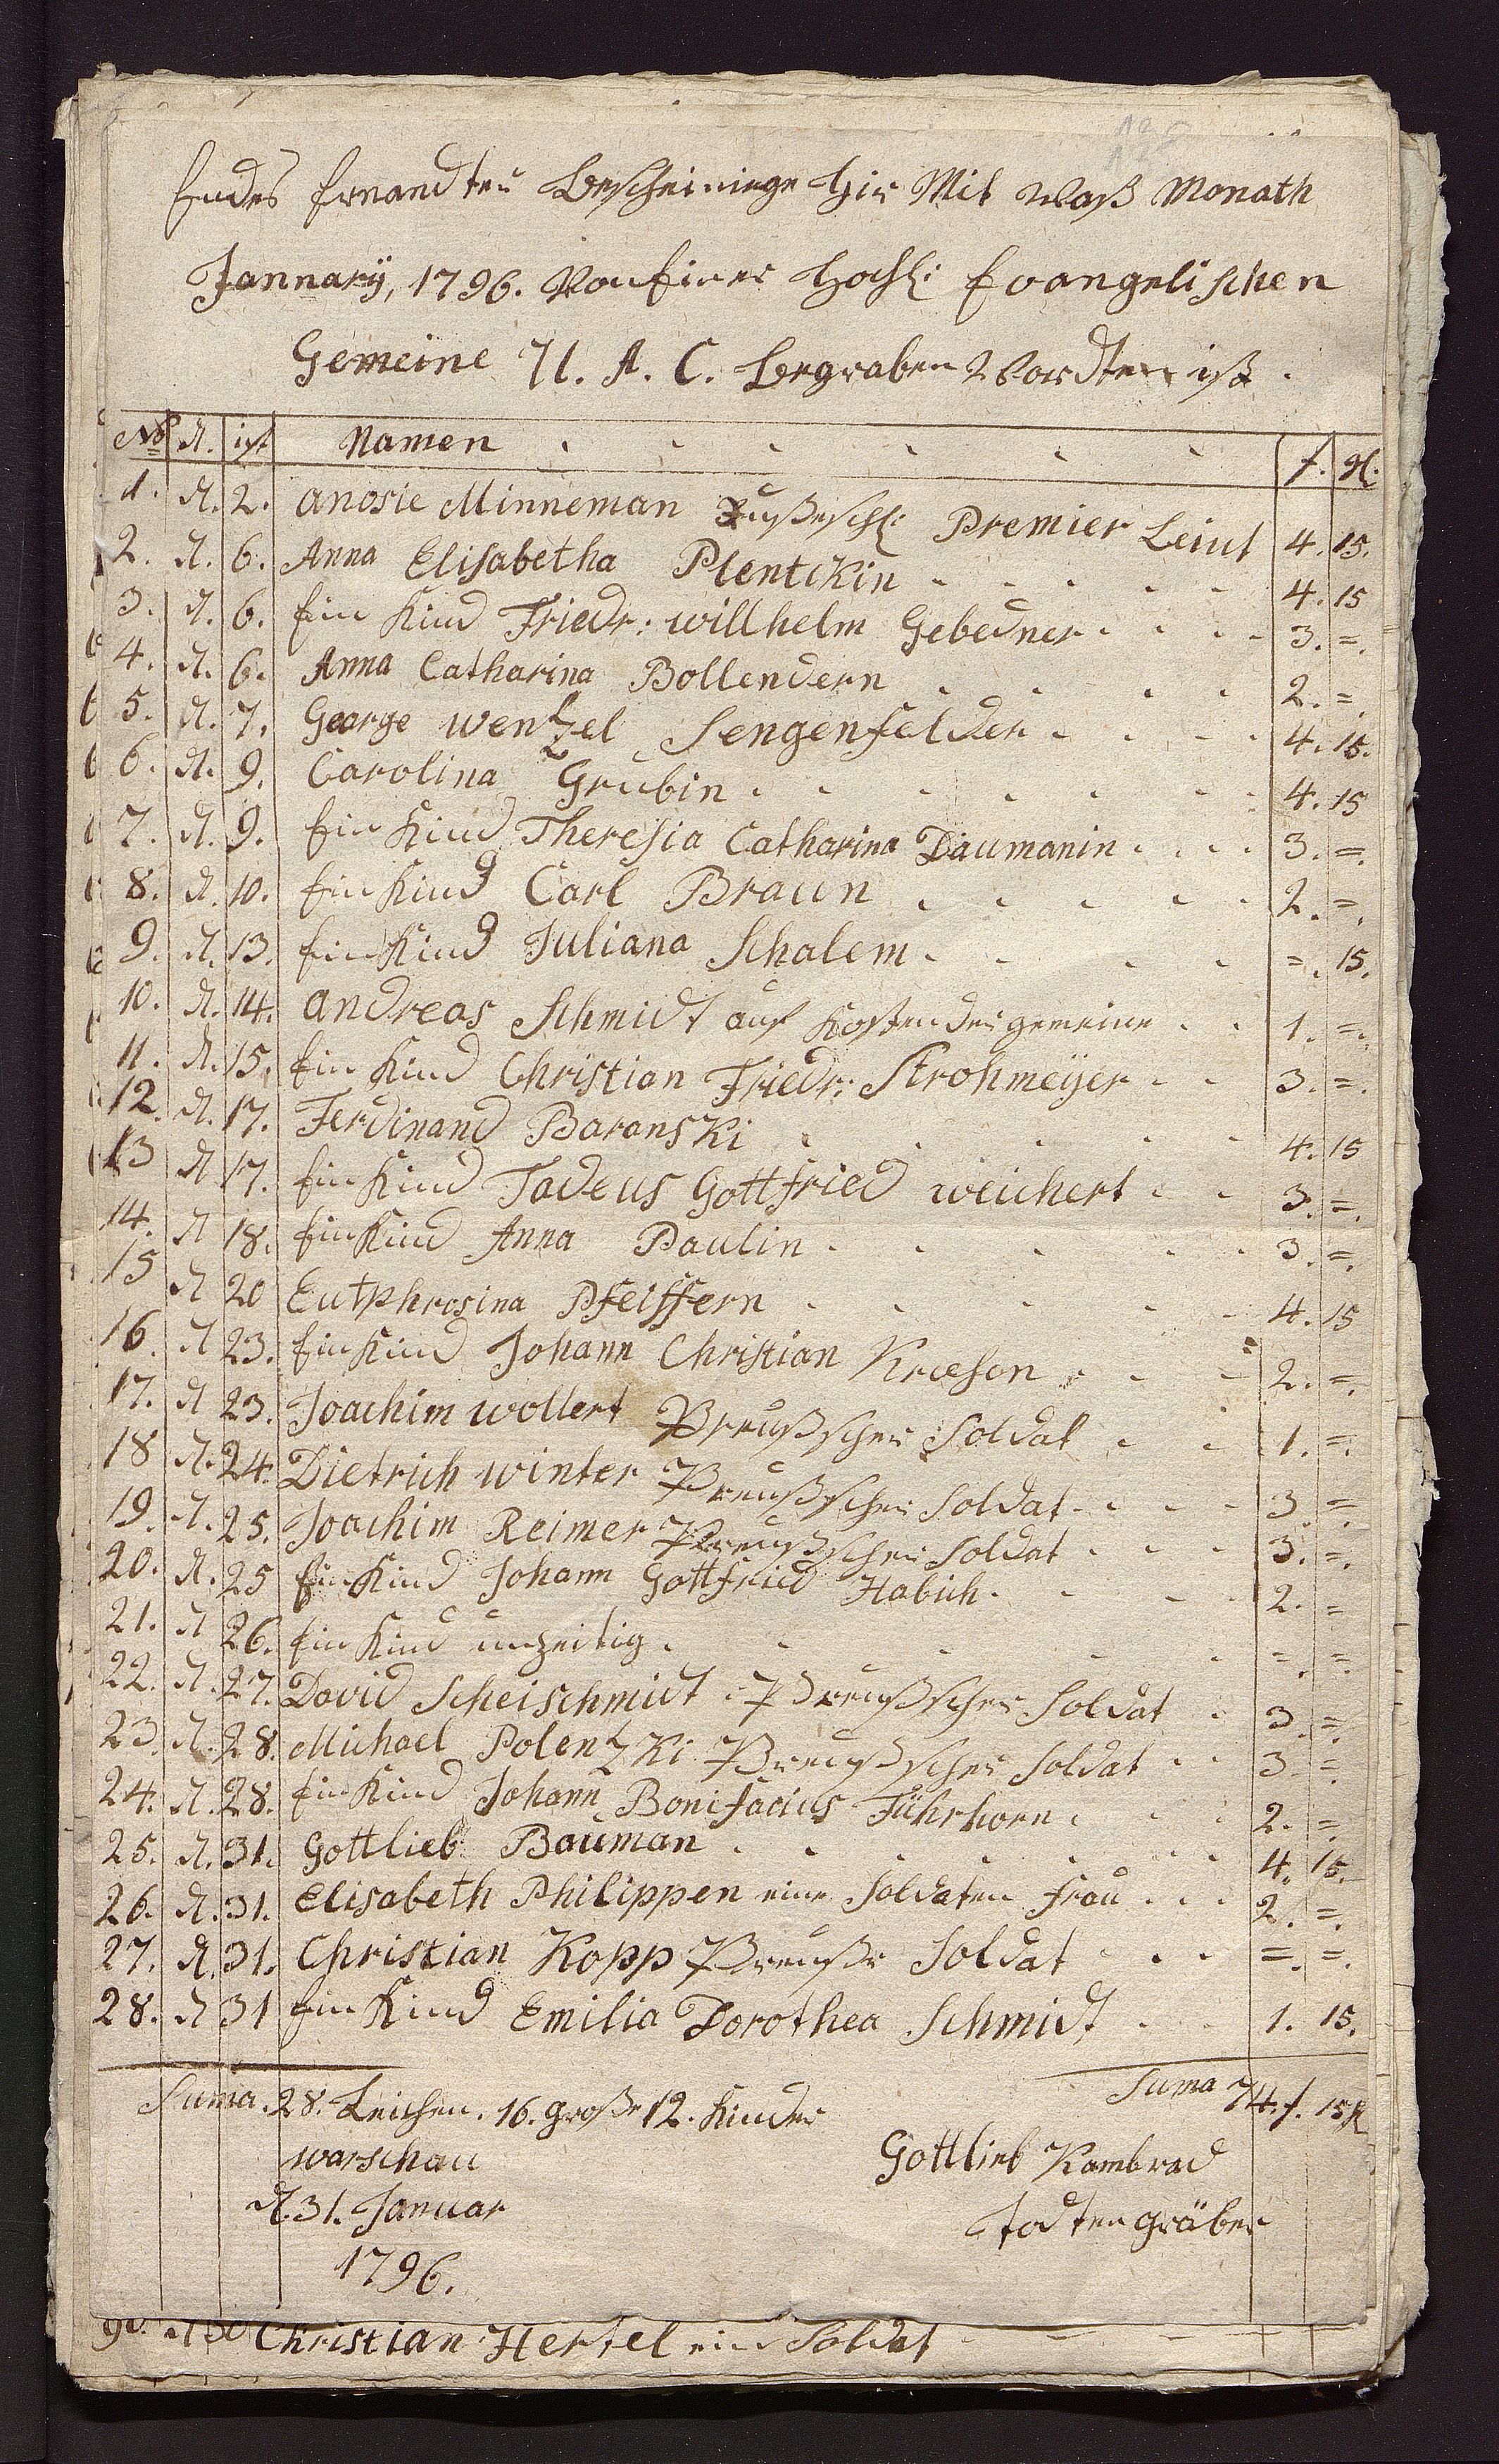 Endes Ernandter Bescheinige Hir Mit Waß Monath
Jannarÿ, 1796. Von Einer Hochl: Evangelischen
Gemeine U. A. C. Begraben Wordten ist.
No d. ist Namen f. gl.
1. d. 2. anosie Minneman Premier Leint 4. 15.
2. d. 6. Anna Elisabetha Plentckin 4. 15
3. d. 6. Ein Kind Friedr: willhelm Gebedner 3. =.
4. d. 6. Anna Catharina Bollendern 2. =.
5. d. 7. George wentzel Sengenfelder 4. 15.
6. d. 9. Carolina Grubin 4. 15
7. d. 9. Ein Kind Theresia Catharina Daumanin 3. =.
8. d. 10. Ein Kind Carl Braun 2. =.
9. d. 13. Ein Kind Juliana Schalem =. 15.
10. d. 14. andreas Schmidt auf Kosten der gemeine 1. =.
11. d. 15. Ein Kind Christian Friedr: Strohmeÿer 3. =.
12. d. 17. Ferdinand Baranski 4. 15
13 d 17. Ein Kind Tadeus Gottfried weichert 3. =.
14. d 18. Ein Kind Anna Paulin 3. =.
15 d 20 Eutphrosina Pfeiffern 4. 15
16. d 23. Ein Kind Johann Christian Kraeson 2. =.
17. d 23. Joachim wollert Preußscher Soldat 1. =.
18 d. 24. Dietrich winter Preußscher Soldat 3 =.
19. d. 25. Joachim Reimer Preußscher Soldat 3. =.
20. d. 25 Ein Kind Johann Gottfried Habich 2. =
21. d 26. Ein Kind unzeitig =. =.
22. d. 27. David Scheischmidt Preußscher Soldat 3. =.
23. d. 28. Michael Polentzki Preußscher Soldat 3. =.
24. d. 28. Ein Kind Johann Bonifacius Führhorn 2. =.
25. d. 31. Gottlieb Bauman 4. 15.
26. d. 31. Elisabeth Philippen eine Soldaten Frau 2. =.
27. d. 31. Christian Kopp Preußr Soldat =. =.
28. d 31 Ein Kind Emilia Dorothea Schmidt 1. 15.
Suma. 28. Leichen. 16. große 12. Kinder Suma 74. f. 15 gl
warschau Gottlieb Kambrad
d. 31. Januar Todtengräber
1796.
Christian Hertel ein Soldat